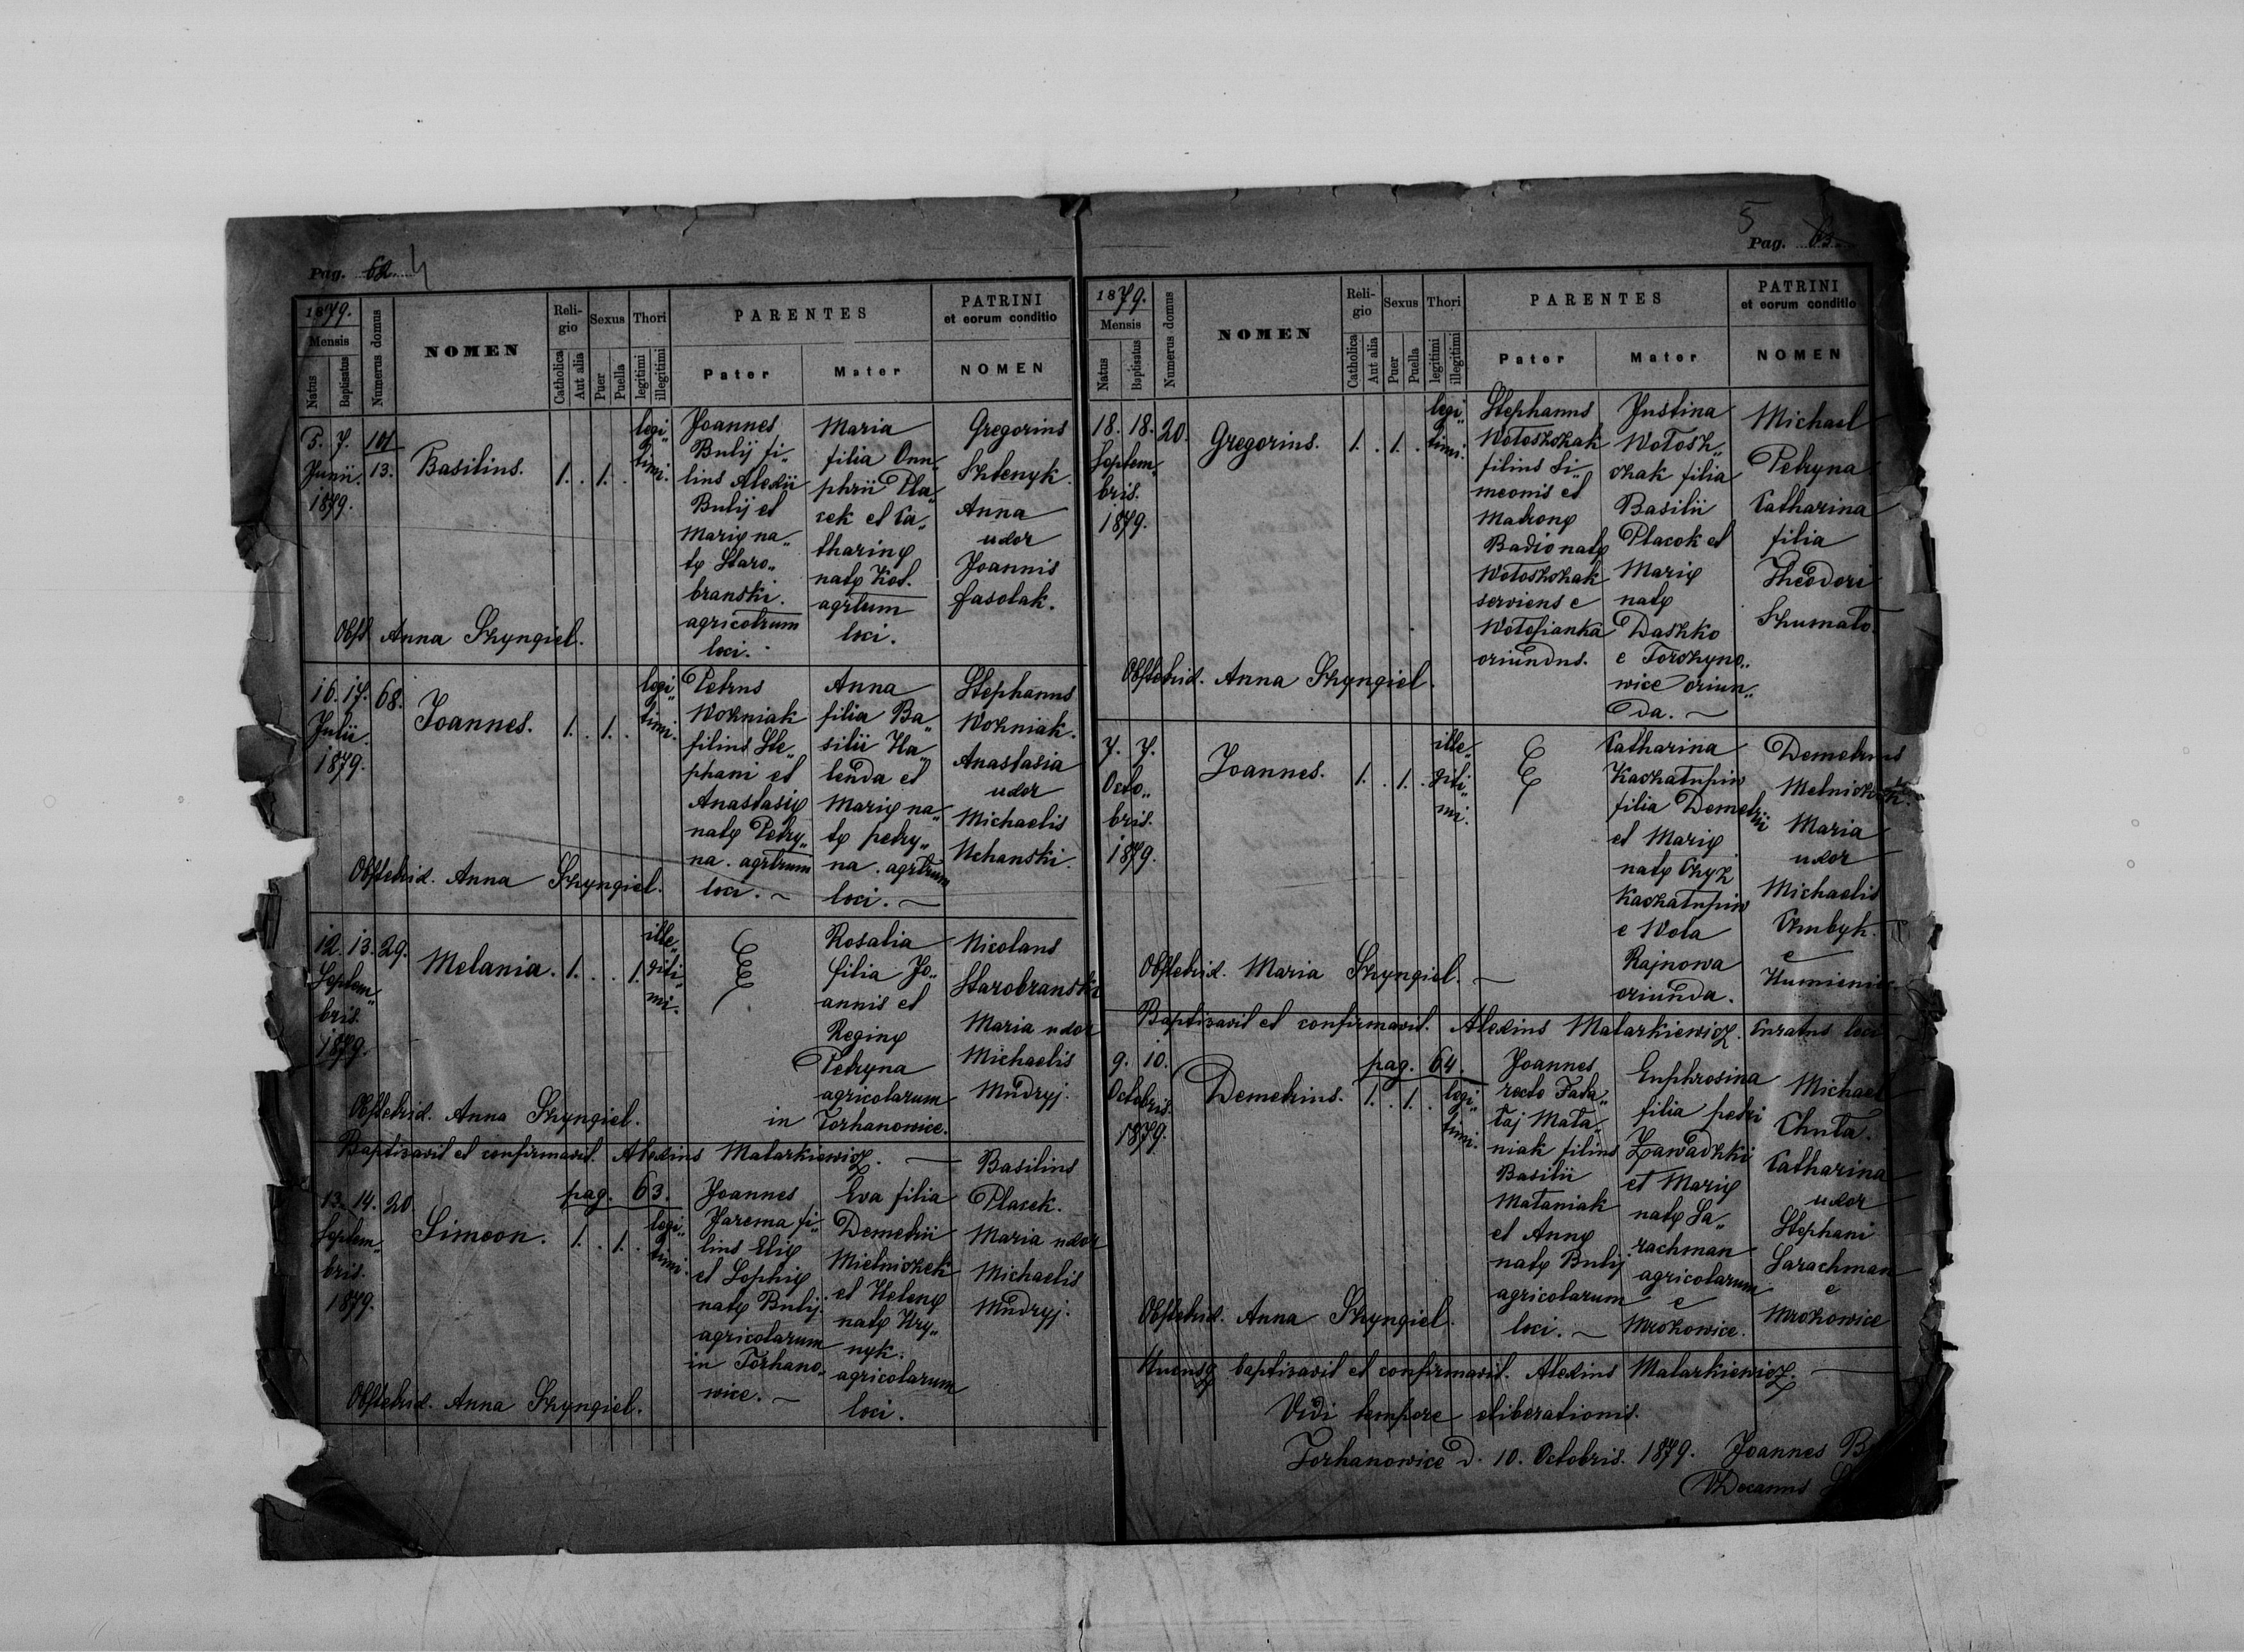 Pag. 62 4
1879.
Mensis
Natus
Baptisatus
Numerus domus
NOMEN
Reli-
gio
Catholica
Aut alia
Sexus
Puer
Puella
Thori
legitimi
illegitimi
PARENTES
Pater
Mater
PATRINI
et eorum conditio
NOMEN
5. 7.
Junii.
1879.
101
13.
Basilius.
1. . 1. .
legi„
timi.
Joannes
Bulij fi„
lius Alexii
Bulij et
Marię na„
tę Staro„
branski.
agricolrum
loci.
Maria
filia Onu„
phrii Pla„
cek et Ca„
tharinę
natę Kos.
agrlum
loci.
Gregorius
Shlenyk.
Anna
uxor
Joannis
Fasolak.
Obst. Anna Szyngiel.
16. 17.
Julii.
1879.
68.
Joannes.
1. . 1. .
legi„
timi.
Petrus
Wozniak
filius Ste„
phani et
Anastasię
natę Petry„
na. agrlrum
loci. ~
Anna
filia Ba„
silii Ha„
lenda et
Marię na„
tę petry„
na. agrlrum
loci. ~
Stephanus
Wozniak.
Anastasia
uxor
Michaelis
Uchanski.
Obstetrix. Anna Szyngiel.
12. 13.
Septem„
bris.
1879.
29.
Melania.
1. . . 1.
ille„
giti„
mi.
Rosalia
filia Jo„
annis et
Reginę
Petryna
agricolarum
in Torhanowice.
Nicolaus
Starobranski
Maria uxor
Michaelis
Mudryj.
Obstetrix. Anna Szyngiel.
Baptisavit et confirmavit. Alexius Matarkiewicz.
13. 14.
Septem„
bris.
1879.
20
pag. 63.
Simeon.
1. . 1. .
legi„
timi.
Joannes
Jarema fi„
lius Elię
et Sophię
natę Bulij.
agricolarum
in Torhano„
wice. ~
Eva filia
Demetrii
Mielniczek
et Helenę
natę Hry„
nyk.
agricolarum
loci.
Basilius
Placek.
Maria uxor
Michaelis
Mudryj.
Obstetrix. Anna Szyngiel.
5
Pag. 63
1879.
Mensis
Natus
Baptisatus
Numerus domus
NOMEN
Reli-
gio
Catholica
Aut alia
Sexus
Puer
Puella
Thori
legitimi
illegitimi
PARENTES
Pater
Mater
PATRINI
et eorum conditio
NOMEN
18. 18.
Septem„
bris.
1879.
20.
Gregorius.
1. . 1. .
legi„
timi.
Stephanus
Wołoszczak
filius Si„
meonis et
Matronę
Badio natę
Wołoszczak
serviens e
Wołosianka
oriundus.
Justina
Wołosz„
czak filia
Basilii
Placek et
Marię
natę
Daszko
e Torczyno„
wice oriun„
da. ~
Michael
Petryna
Catharina
filia
Theodori
Szumało.
Obstetrix. Anna Szyngiel.
7. 7.
Octo„
bris.
1879.
Joannes.
1. . 1. .
ille„
giti„
mi.
Catharina
Kaczałupiw
filia Demetrii
et Marię
natę Czyż
Kaczałupiw
e Wola
Rajnowa
oriunda.
Demetrius
Melniczek.
Maria
uxor
Michaelis
Chubyk.
e
Humieniec
Obstetrix. Maria Szyngiel. ~
Baptisavit et confirmavit. Alexius Matarkiewicz. Curatus loci
9. 10.
Octobris.
1879.
pag. 64.
Demetrius.
1. . 1. .
legi„
timi.
Joannes
recto Fata„
łaj Mata„
niak filius
Basilii
Mataniak
et Annę
natę Bulij
agricolarum
loci. ~
Euphrosina
filia petri
Zawadzki
et Marię
natę Sa„
rachman
agricolarum
e
Mrozowice.
Michael
Chuta.
Catharina
uxor
Stephani
Sarachman
e
Mrozowice
Obstetrix. Anna Szyngiel.
Hucusq baptisavit et confirmavit. Alexius Matarkiewicz.
Vidi tempore eliberationis.
Torhanowice D. 10. Octobris. 1879. Joannes
VDecanus